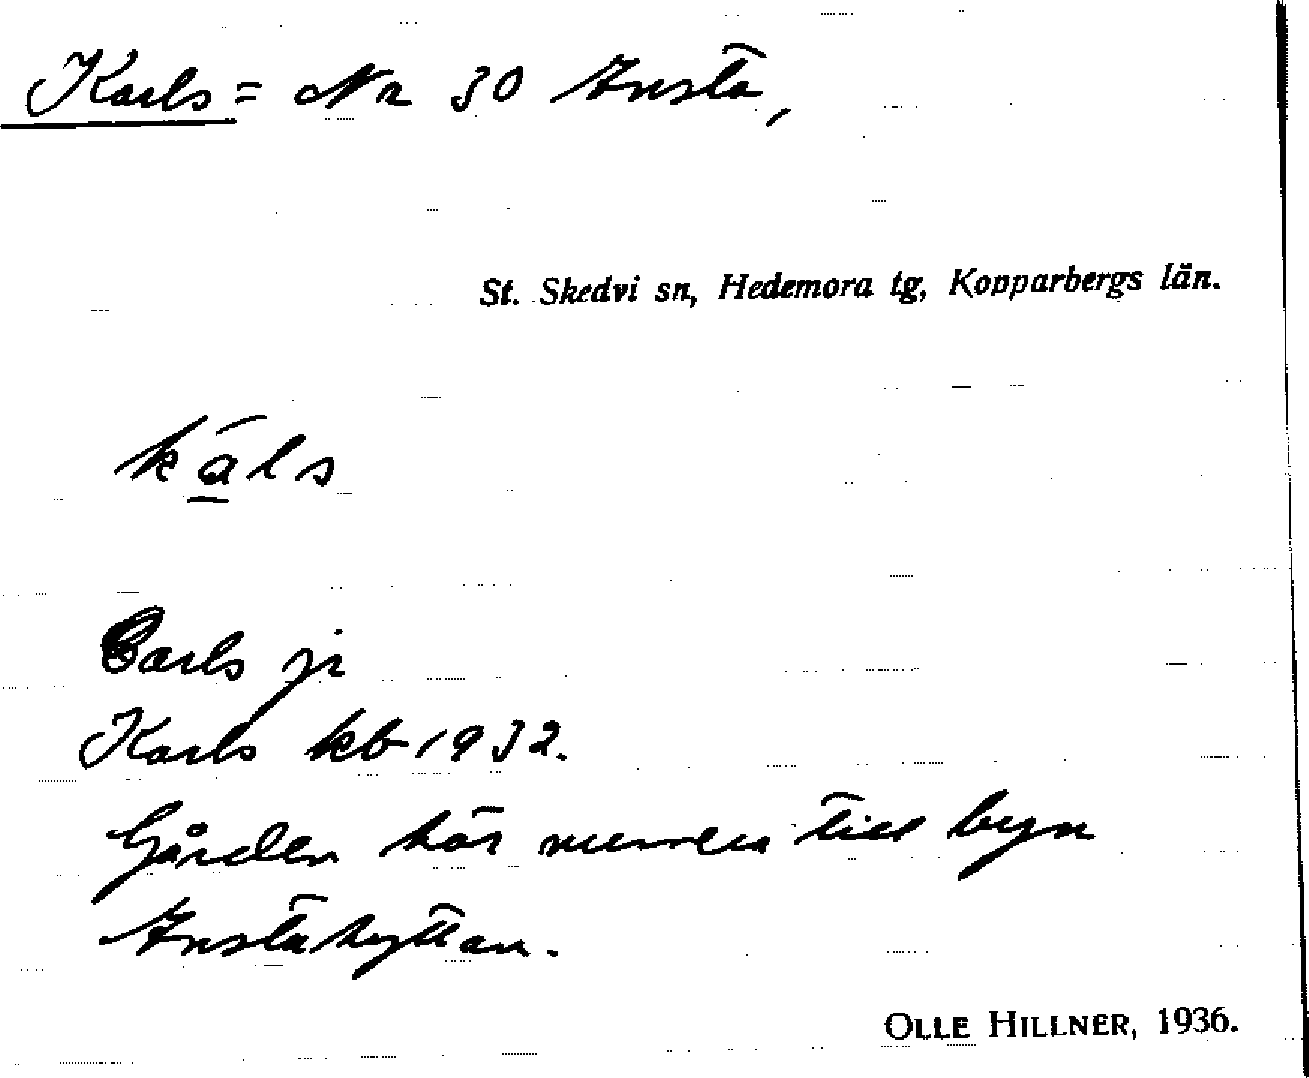 Karls = Nr 30 Ansta,
St. Skedvi sn, Hedemora tg, Kopparbergs län.
kāls
Carls jr
Karls kb 1932.
Gården hör numera till byn
Anstahyttan.
OLLE HILLNER, 1936.